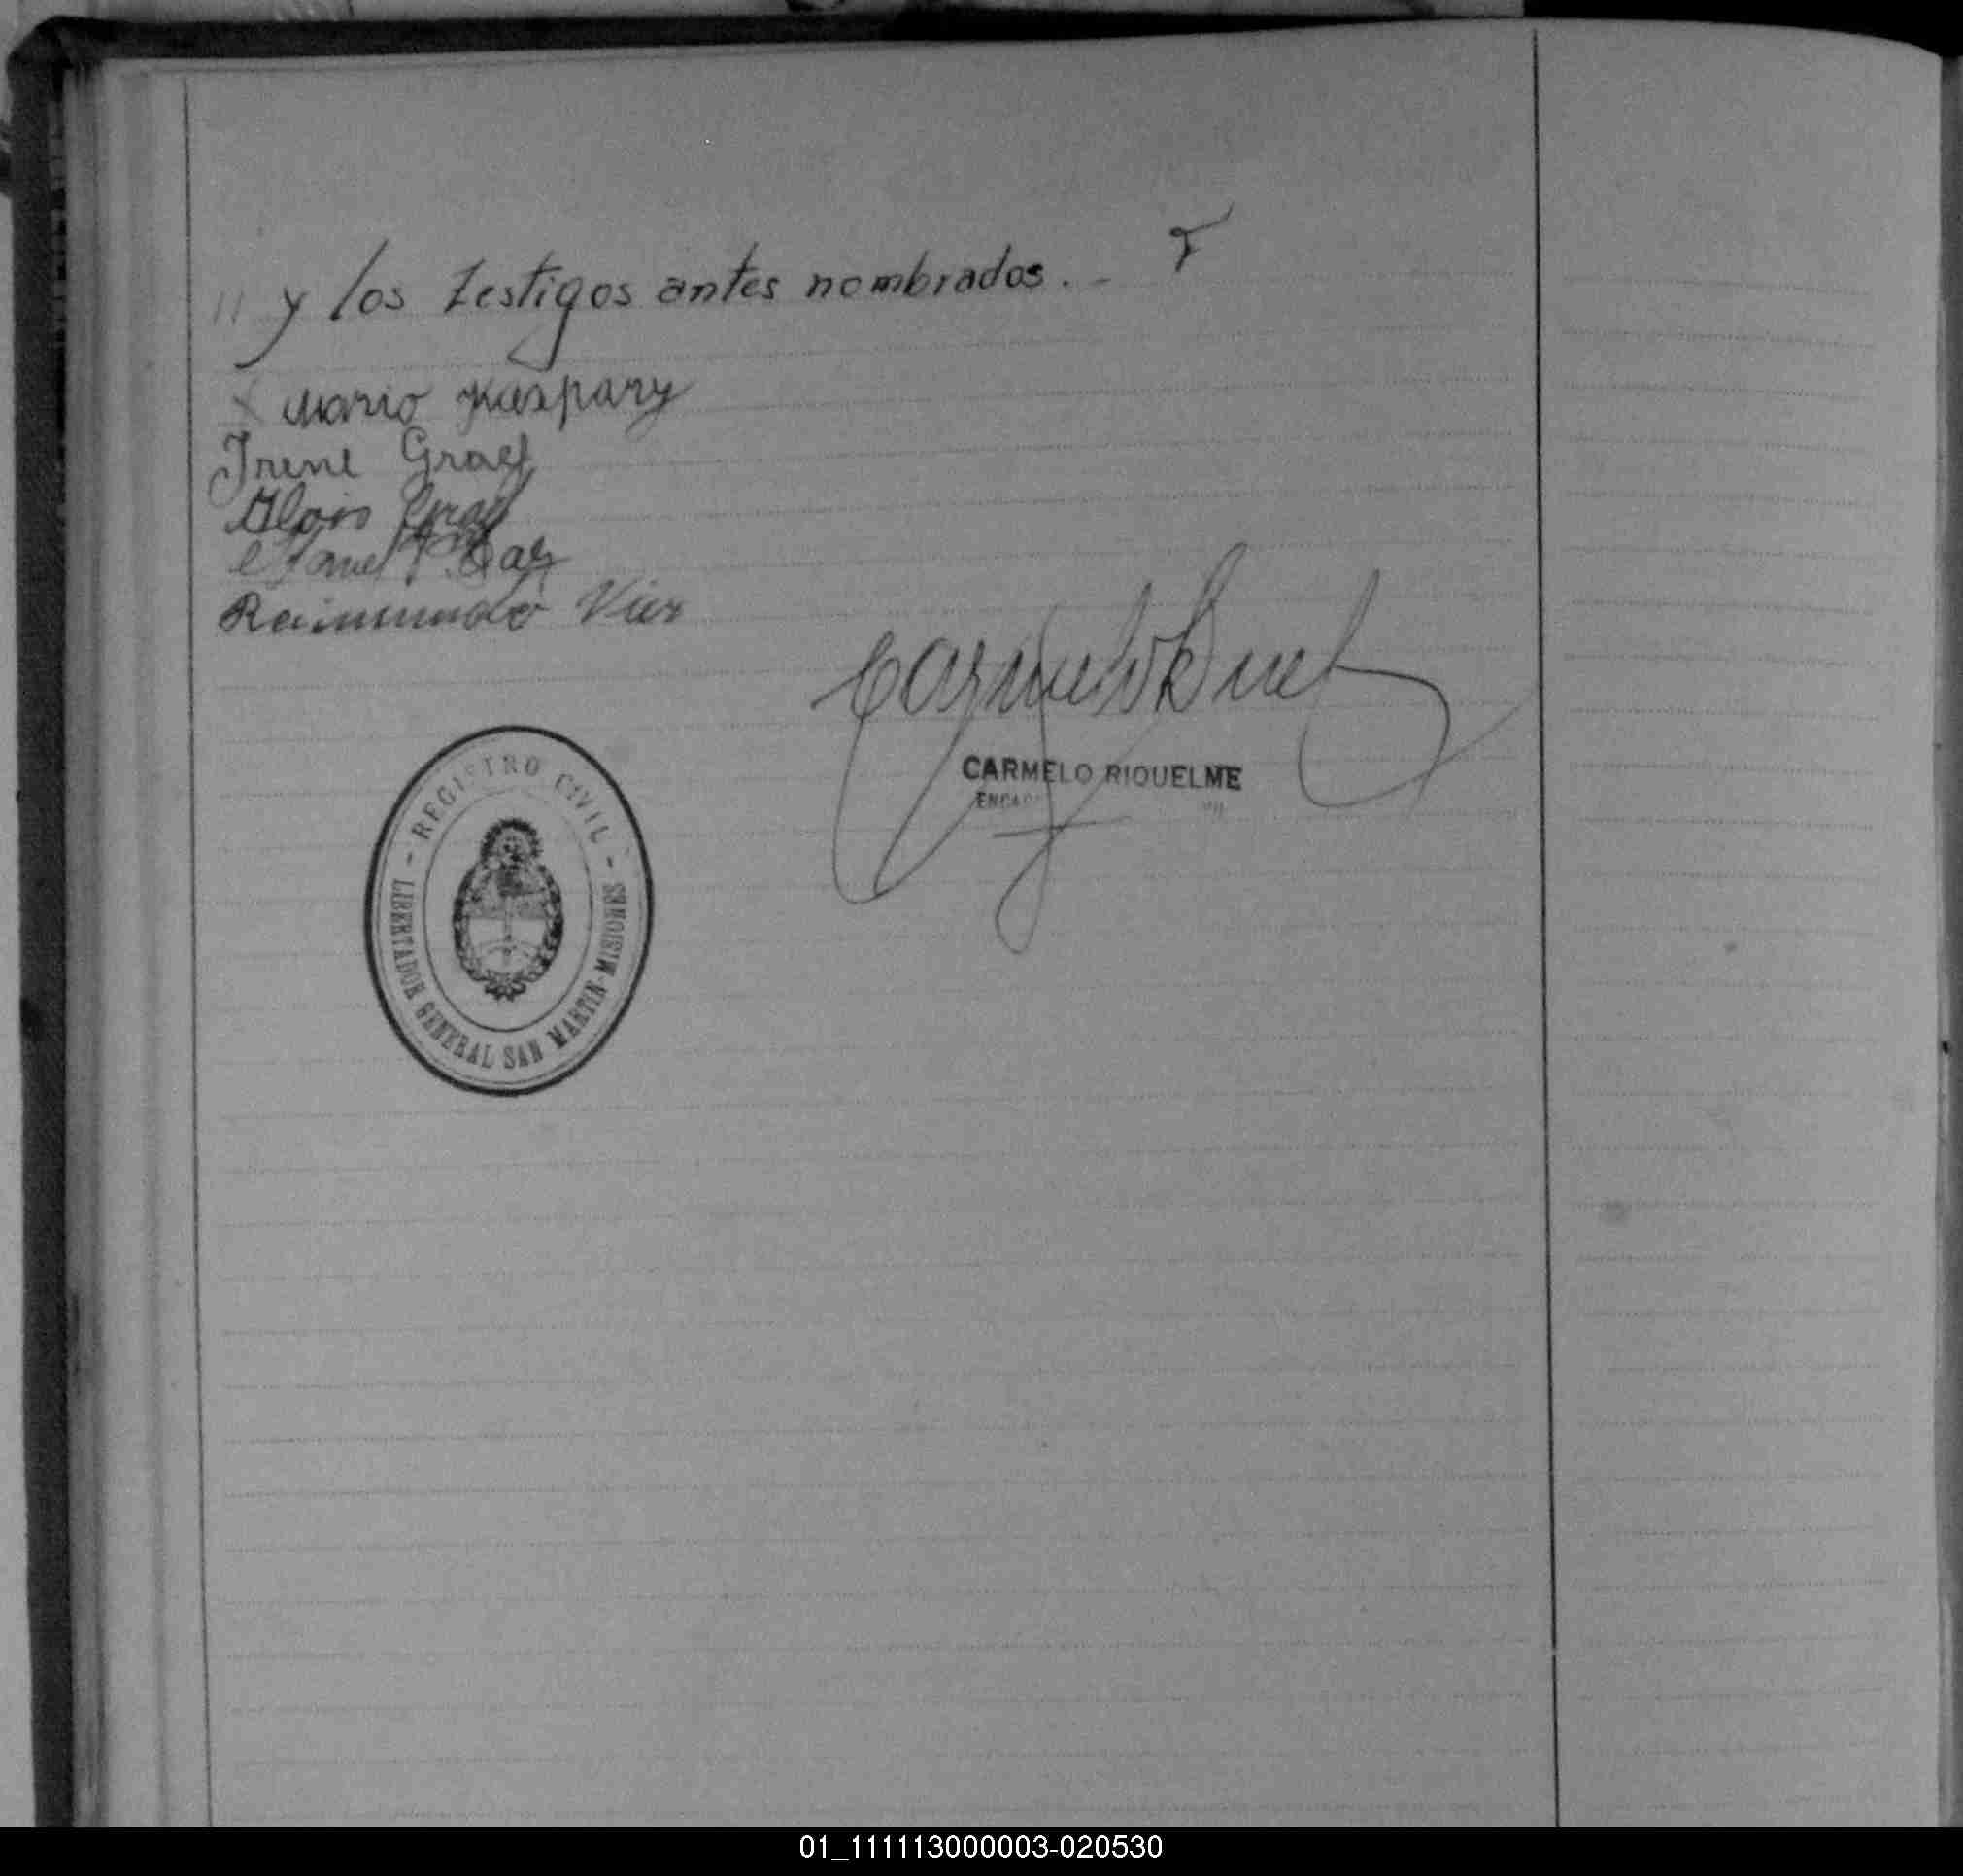 // y los testigos antes nombrados. -
Mario Kaspary
Irene Graef
Alois Graef
Raimundo Vier
CARMELO RIQUELME
REGISTRO CIVIL
- LIBERTADOR GENERAL SAN MARTIN-MISIONES -
01_111113000003-020530